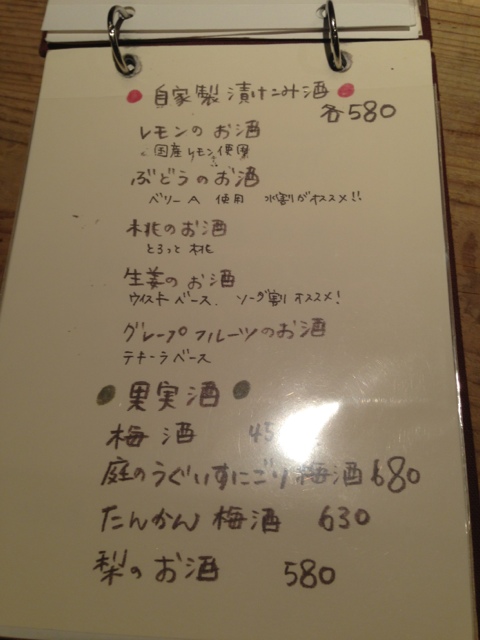 自家製漬けこみ酒
各580
レモンのお酒
国産レモン使用
ぶどうのお酒
ベリーA 使用 水割がオススメ!!
桃のお酒
とろって桃
生姜のお酒
ウイスキーベース. ソーダ割 オススメ!
グレープフルーツのお酒
テキーラベース
果実酒
梅酒
庭のうぐいすにごり梅酒 680
たんかん梅酒 630
梨のお酒 580